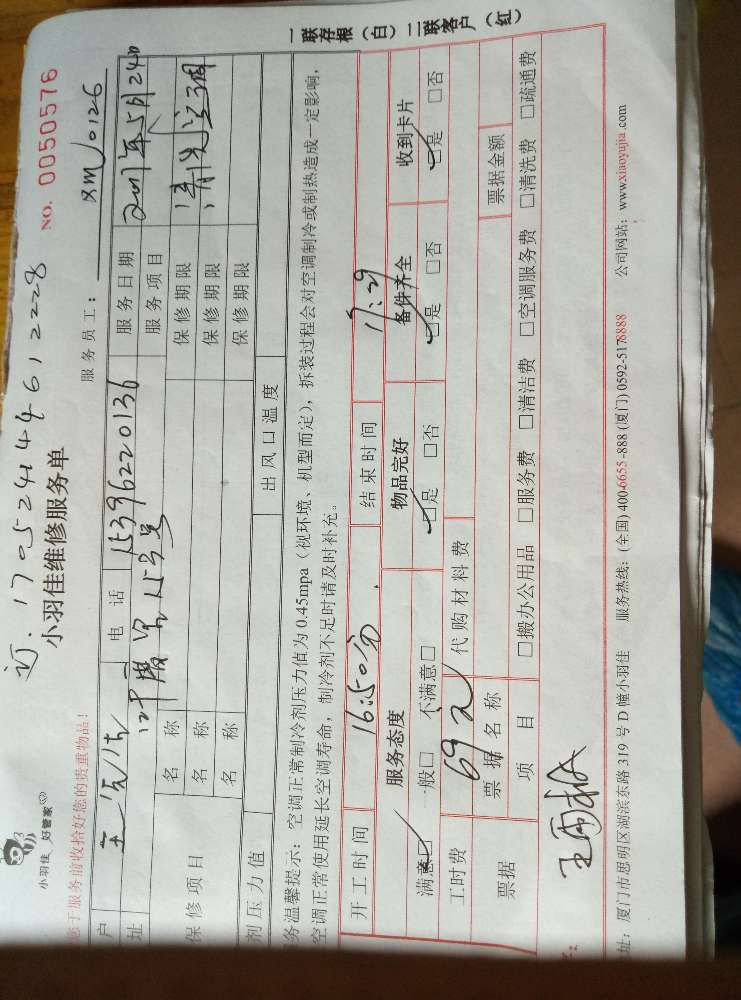 订:17052414461 2228
小羽佳 好管家
小羽佳维修服务单
NO. 0050576
您于服务前收拾好您的贵重物品!
服务员工: XMJ0126
户 王先生 电话 15396220136 服务日期
址 服务项目 清洗空调
保修项目 名称 保修期限
名称 保修期限
名称 保修期限
剂压力值 出风口温度
务温馨提示:空调正常制冷剂压力值为0.45mpa(视环境、机型而定),拆装过程会对空调制冷或制热造成一定影响,
空调正常使用延长空调寿命,制冷剂不足时请及时补充。
开工时间 16:50分 结束时间 17:29
服务态度 物品完好 备件齐全 收到卡片
满意□ 一般□ 不满意□ □是 □否 □是 □否 □是 □否
工时费 69元 代购材料费
票据 票据名称 票据金额
项目 □搬办公用品 □服务费 □清洁费 □空调服务费 □清洗费 □疏通费
一联存根(白)二联客户(红)
址:厦门市思明区湖滨东路319号D幢小羽佳 服务热线:(全国)400-6655-888(厦门)0592-5178888 公司网站:www.xiaoyujia.com